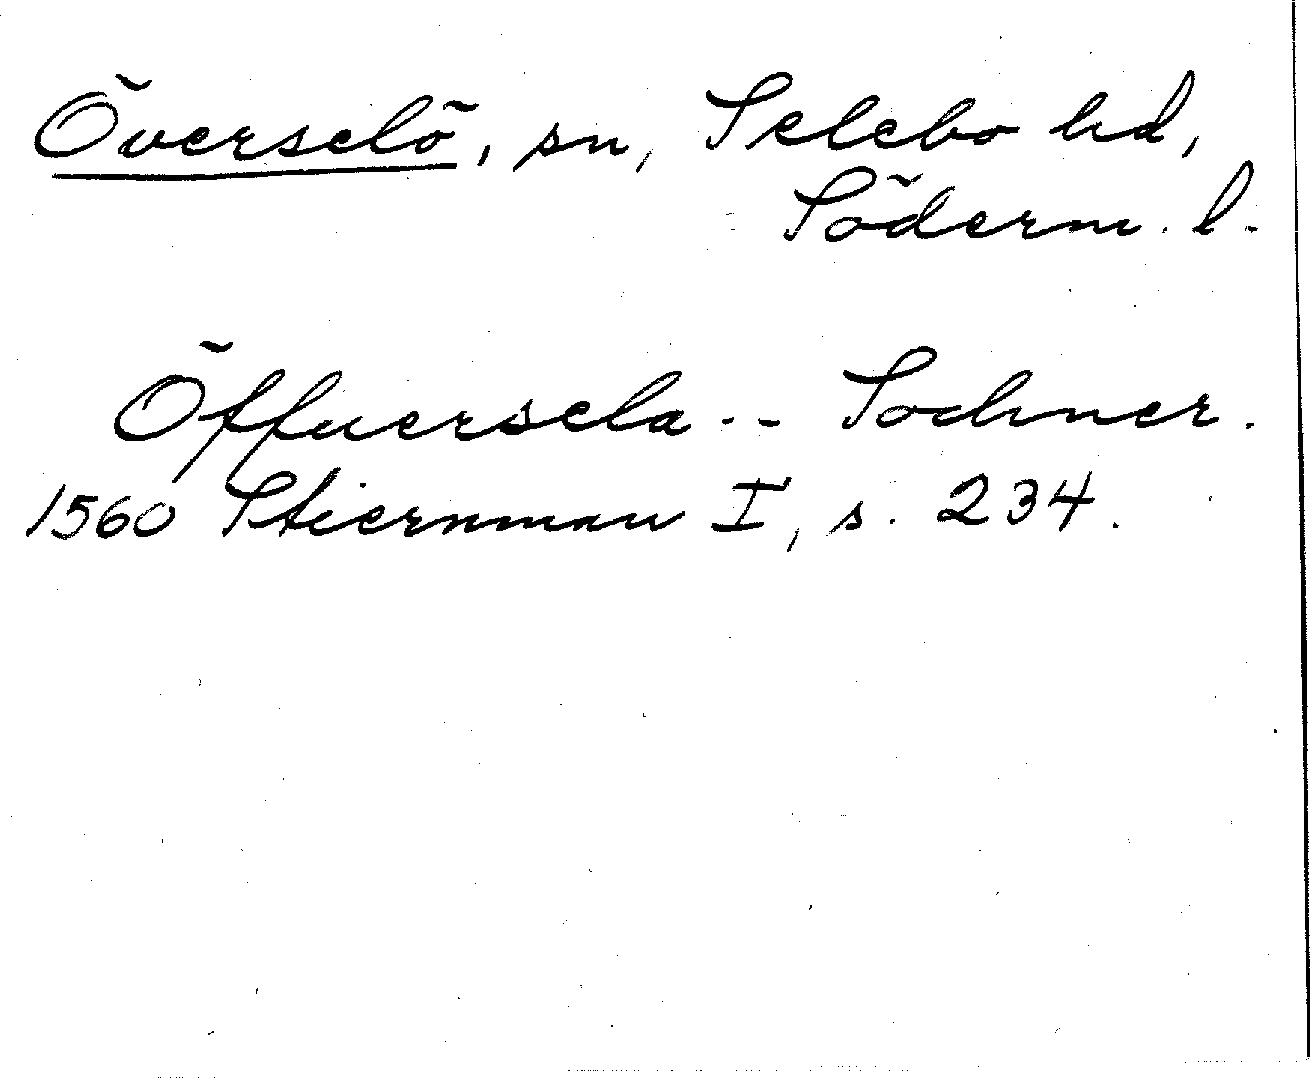 Överselö, sn, Selebo hd,
Söderm. l.
Öffuersela -- Sochner.
1560 Stiernman I, s. 234.